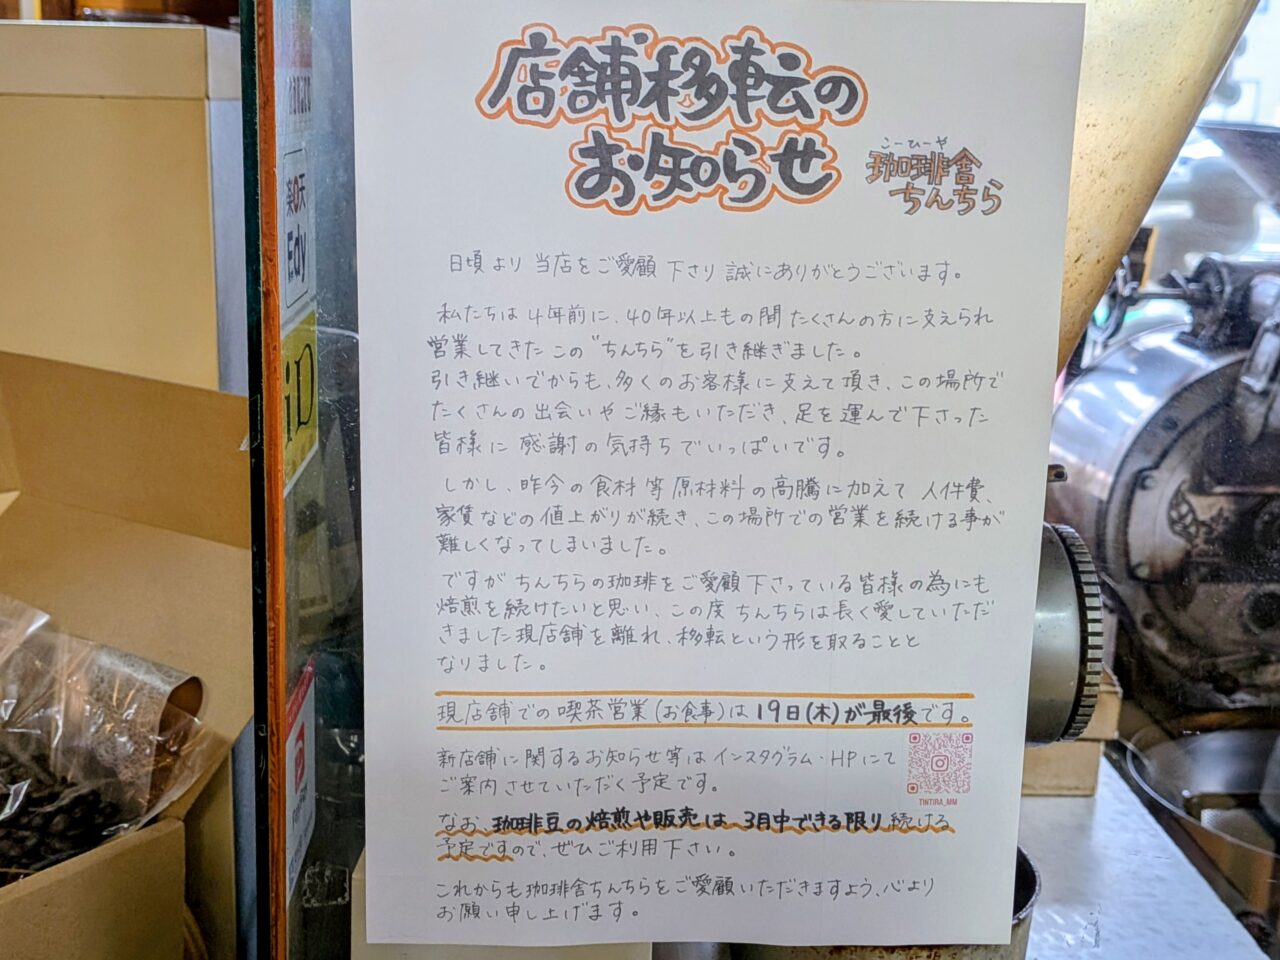 店舗移転の
お知らせ
こーひーや
珈琲舎
ちんちら
日頃より当店をご愛顧下さり誠にありがとうございます。
私たちは4年前に、40年以上もの間たくさんの方に支えられ
営業してきたこの"ちんちら"を引き継ぎました。
引き継いでからも、多くのお客様に支えて頂き、この場所で
たくさんの出会いやご縁もいただき、足を運んで下さった
皆様に感謝の気持ちでいっぱいです。
しかし、昨今の食材等原材料の高騰に加えて人件費、
家賃などの値上がりが続き、この場所での営業を続ける事が
難しくなってしまいました。
ですがちんちらの珈琲をご愛顧下さっている皆様の為にも
焙煎を続けたいと思い、この度ちんちらは長く愛していただ
きました現店舗を離れ、移転という形を取ることと
なりました。
現店舗での喫茶営業(お食事)は19日(木)が最後です。
新店舗に関するお知らせ等はインスタグラム・HPにて
ご案内させていただく予定です。
TINTIRA_MM
なお、珈琲豆の焙煎や販売は、3月中できる限り続ける
予定ですので、ぜひご利用下さい。
これからも珈琲舎ちんちらをご愛顧いただきますよう、心より
お願い申し上げます。
楽天
Edy
iD